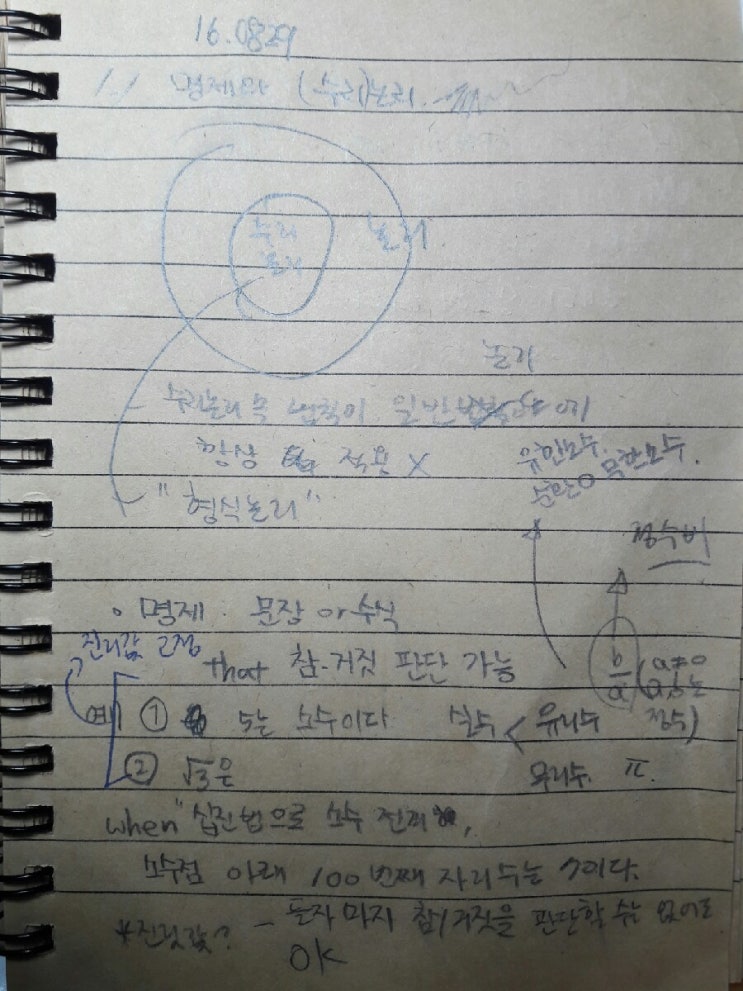 16.0829
1.1 명제와 (수리)논리.
수리
논리
논리
논리
- 수리논리 속 법칙이 일반 에
항상 적용 X
"형식논리"
유한소수.
순환 무한소수.
정수비
。명제 문장 or 수식
진리값 고정
that 참·거짓 판단 가능
b/a (a≠0 a,b는 정수)
예) ① 5는 소수이다
실수 < 유리수
② √3은
무리수. π.
when "십진법으로 소수 전개
소수점 아래 100번째 자리수는 7이다.
*진릿값? - 듣자마자 참/거짓을 판단할 수는 없어도
OK